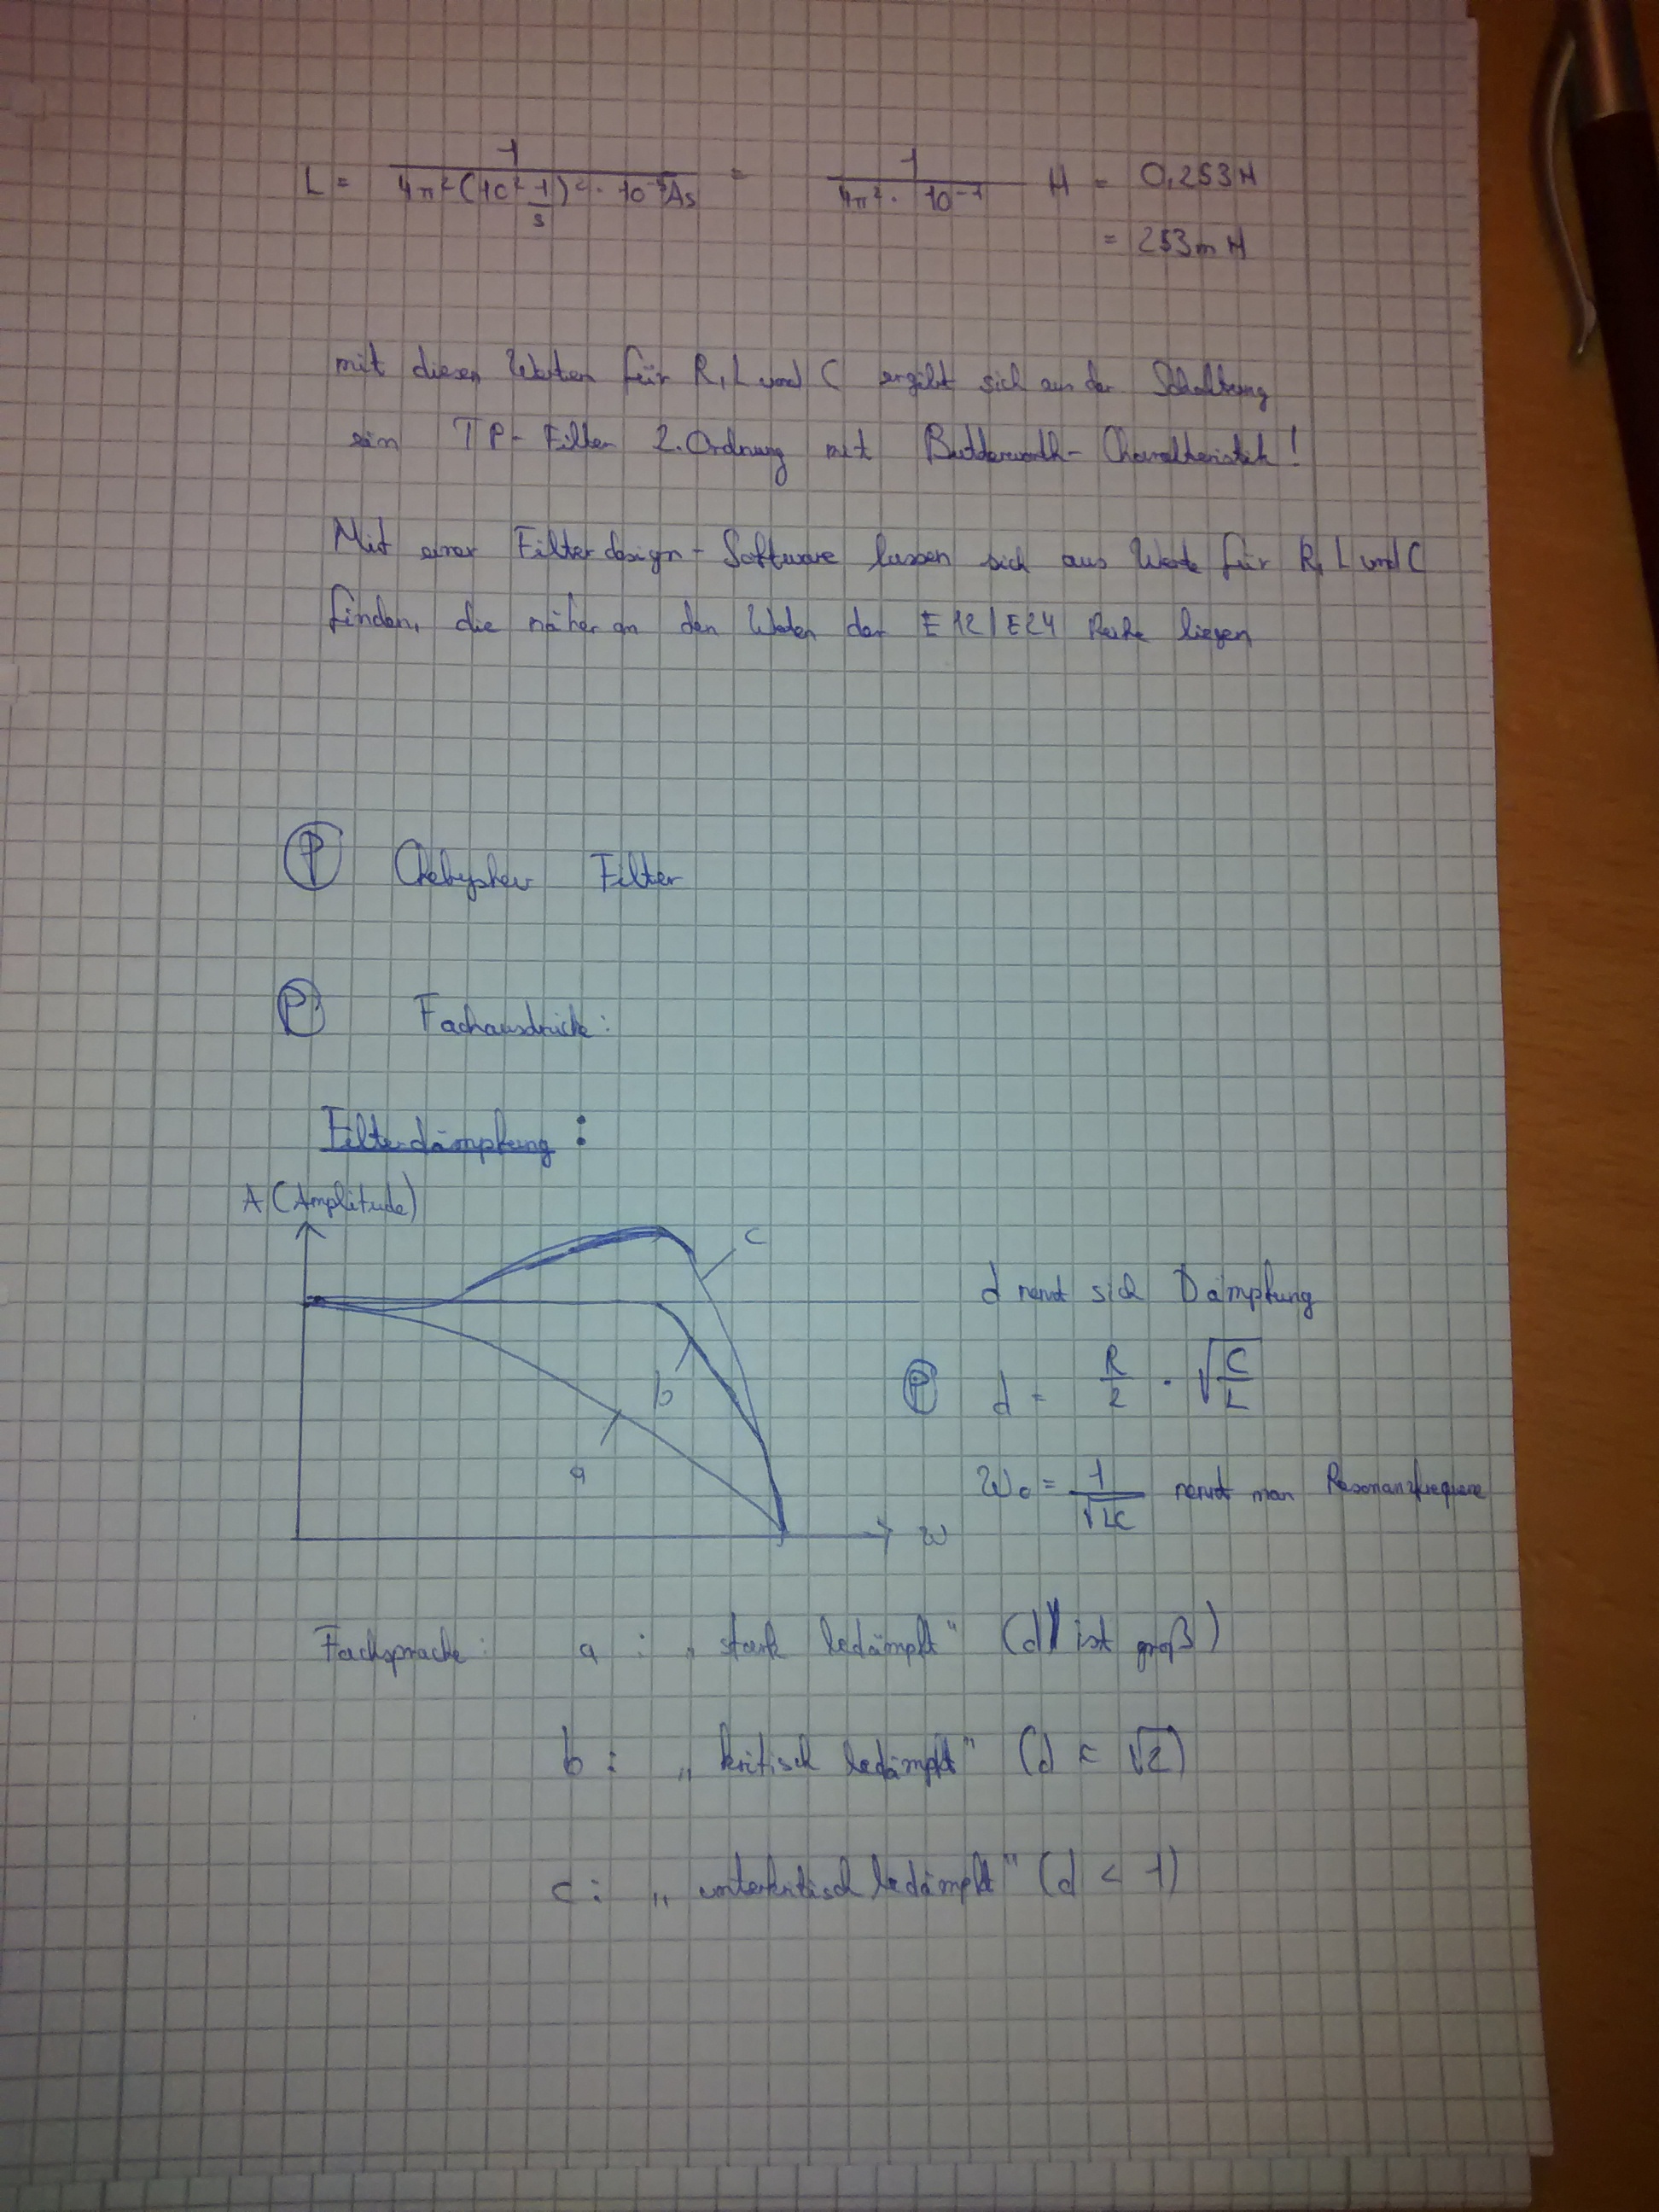 L = 1 / (4π² (10² 1/s)² · 10⁻⁵ As) = 1 / (4π² · 10⁻¹) H = 0,253 H
= 253 mH
mit diesen Werten für R, L und C ergibt sich aus der Schaltung
ein TP-Filter 2. Ordnung mit Butterworth-Charakteristik!
Mit einer Filterdesign-Software lassen sich aus Werte für R, L und C
finden, die näher an den Werten der E12/E24 Reihe liegen
P Chebyshev Filter
P Fachausdrücke:
Filterdämpfung:
A (Amplitude)
c
b
a
ω
d nennt sich Dämpfung
P d = R/2 · √(C/L)
ω₀ = 1/√(LC) nennt man Resonanzfrequenz
Fachsprache: a : „stark bedämpft" (d ist groß)
b : „kritisch bedämpft" (d = √2)
c : „unterkritisch bedämpft" (d < 1)